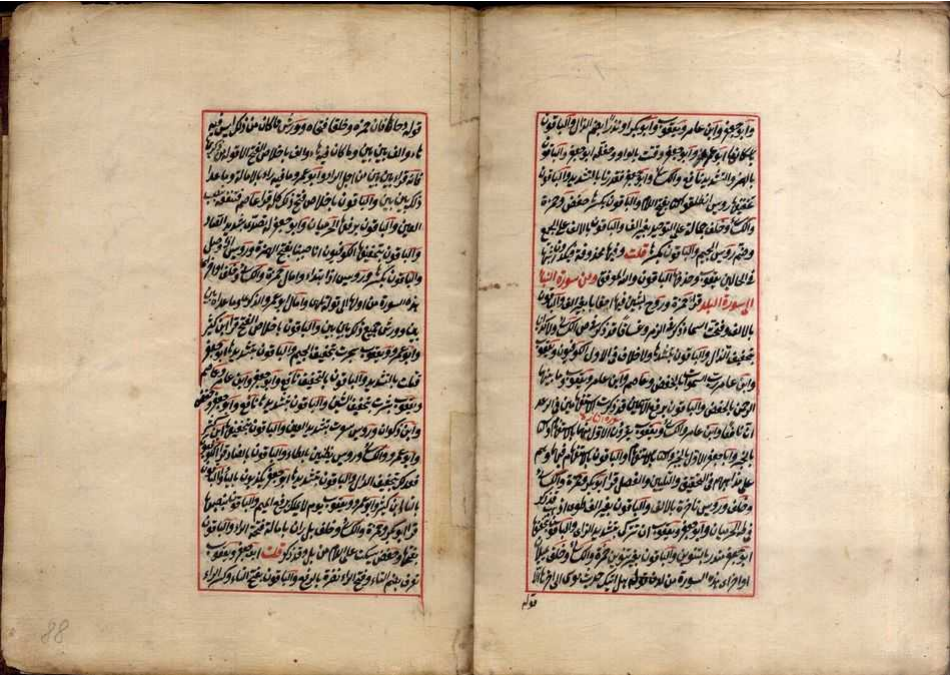 وابو جعفر وابن عامر ويعقوب وابو بكر او نذرا بضم الذال والباقون
باسكانها ابو عمرو وابو جعفر وقتت بالواو وخفف ابو جعفر والباقون
بالهمز والتشديد نافع والكسائي وابو جعفر فقدرنا بالتشديد والباقون
بتخفيفها رويس انطلقوا الى بفتح اللام والباقون بكسرها حفص وحمزة
والكسائي وخلف جمالة على التوحيد بغير الف والباقون بالالف على الجمع
وضم رويس الجيم والباقون بكسرها قلت وفيها محذوفة فكيدون اثبتها
في الحالين يعقوب وحذفها الباقون والله الموفق ومن سورة النبأ
الى سورة البلد قرأ حمزة وروح لبثين فيها احقابا بغير الف والباقون
بالالف وفتحت السماء ذكر في الزمر وغساقا قد ذكر في ص الكسائي ولا كذابا
بتخفيف الذال والباقون بتشديدها ولا خلاف في الاول الكوفيون ويعقوب
وابن عامر رب السموات بالخفض وعاصم وابن عامر ويعقوب وما بينهما
الرحمن بالخفض والباقون برفع الاسمين قد ذكرت الاستفهامين في الرعد
سورة النازعات
ان نافعا وابن عامر والكسائي ويعقوب يقرؤن الاول منهما بالاستفهام والثاني
بالخبر وابا جعفر الاول بالخبر والثاني بالاستفهام والباقون بالاستفهام فيهما وهم
على مذاهبهم في التحقيق والتليين والفصل قرأ ابو بكر وحمزة والكسائي
وخلف ورويس ناخرة بالالف والباقون بغير الف طوى اذهب قد ذكر
في طه الحرميان وابو جعفر ويعقوب الى ان تزكى بتشديد الزاي والباقون بتخفيفها
ابو جعفر منذر بالتنوين والباقون بغير تنوين حمزة والكسائي وخلف يميلان
اواخر آي هذه السورة من لدن قوله هل اتيك حديث موسى الى اخرها الا
قوله
قوله دحاها فان حمزة وخلفا فتحاه وورش ما كان من ذلك ليس فيه
هاء والف بين بين وما كان فيه هاء والف باخلاص الفتح الا قوله من ذكريها
فانه قراه بين بين من اجل الراء وابو عمرو ما فيه راء بالامالة وما عدا
ذلك بين بين والباقون باخلاص فتح ذلك كله قرأ عاصم فتنفعه بنصب
العين والباقون برفعها الحرميان وابو جعفر له تصدى بتشديد الصاد
والباقون بتخفيفها الكوفيون انا صببنا بفتح الهمزة ورويس اذا وصل
والباقون بكسرها ورويس اذا ابتدأ وامال حمزة والكسائي وخلف اواخر آي
هذه السورة من اولها الى قوله تلهى وامال ابو عمرو الذكرى وما عداه بين
بين وورش جميع ذلك بين بين والباقون باخلاص الفتح قرأ ابن كثير
وابو عمرو ويعقوب سجرت بتخفيف الجيم والباقون بتشديدها ابو جعفر
قتلت بالتشديد والباقون بالتخفيف نافع وابو جعفر وابن عامر وعاصم
ويعقوب نشرت بتخفيف الشين والباقون بتشديدها نافع وابو جعفر وحفص
وابن ذكوان ورويس سعرت بتشديد العين والباقون بتخفيفها ابن كثير
وابو عمرو والكسائي ورويس بظنين بالظاء والباقون بالضاد قرأ الكوفيون
فعدلك بتخفيف الدال والباقون بتشديدها ابو جعفر يكذبون بالياء والباقون
بالتاء ابن كثير وابو عمرو ويعقوب يوم لا تملك برفع الميم والباقون بنصبها
قرأ ابو بكر وحمزة والكسائي وخلف بل ران بامالة فتحة الراء والباقون
بفتحها وحفص يسكت على اللام من بل وقد ذكر قلت ابو جعفر ويعقوب
تعرف بضم التاء وفتح الراء نضرة بالرفع والباقون بفتح التاء وكسر الراء
88